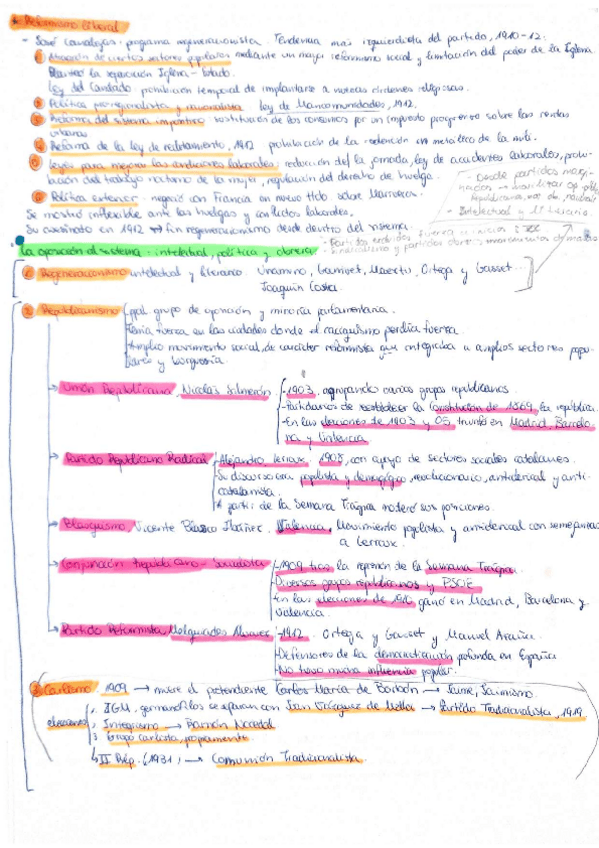 * Reformismo Liberal
- José Canalejas: programa regeneracionista. Tendencia más izquierdista del partido, 1910-12:
① Atracción de ciertos sectores populares mediante un mayor reformismo social y limitación del poder de la Iglesia.
Planteó la separación Iglesia-Estado.
Ley del Candado: prohibición temporal de implantarse a nuevas órdenes religiosas.
Política proregionalista y Ley de Mancomunidades, 1912.
Reforma del sistema impositivo: sustitución de los consumos por un impuesto progresivo sobre las rentas
urbanas
Reforma de la Ley de reclutamiento, 1912 prohibición de la redención en metálico de la mili.
Leyes para mejorar las condiciones laborales: reducción de la jornada, ley de accidentes laborales, prohi-
bición del trabajo nocturno de la mujer, regulación del derecho de huelga.
Política exterior: negoció con Francia en nuevo tdo. sobre Marruecos.
Se mostró inflexible ante las huelgas y conflictos laborales.
Su asesinato en 1912 → fin regeneracionismo desde dentro del sistema.
- Desde partidos margi-
nados → movilizar op. púb.
Republicanos,
- Intelectual y literario
La oposición al sistema: intelectual, política y obrera
- Partidos excluidos
① Regeneracionismo intelectual y literario. Unamuno, Ganivet, Maeztu, Ortega y Gasset...
Joaquín Costa.
② Republicanismo Ppal. grupo de oposición y minoría parlamentaria.
Tenía fuerza en las ciudades donde el caciquismo perdía fuerza.
Amplio movimiento social, de carácter reformista que integraba a amplios sectores popu-
lares y burguesía
→ Unión Republicana, Nicolás Salmerón
- 1903, agrupando varios grupos republicanos
- Partidarios de restablecer la Constitución de 1869, la república.
- En las elecciones de 1903 y 05, triunfó en Madrid, Barcelo-
na y Valencia
→ Partido Republicano Radical
- Alejandro Lerroux, 1908, con apoyo de sectores sociales catalanes.
- Su discurso era populista y demagógico, revolucionario, anticlerical y anti-
catalanista.
A partir de la Semana Trágica moderó sus posiciones.
→ Blasquismo, Vicente Blasco Ibáñez. Valencia. Movimiento populista y anticlerical con semejanzas
a Lerroux.
→ Conjunción Republicano-Socialista
- 1909 tras la represión de la Semana Trágica
- Diversos grupos republicanos y PSOE
- En las elecciones de 1910 ganó en Madrid, Barcelona y
Valencia.
→ Partido Reformista Melquíades Álvarez
- 1912. Ortega y Gasset y Manuel Azaña.
- Defensores de la democratización profunda en España
- No tuvo mucha influencia popular.
③ Carlismo 1909 → muere el pretendiente Carlos María de Borbón → Jaime, Jaimismo.
IGM, germanófilos se separan con Juan Vázquez de Mella → Partido Tradicionalista, 1919
Integrismo → Ramón Nocedal
Grupo carlista, propiamente
↳ II Rep. (1931) → Comunión Tradicionalista